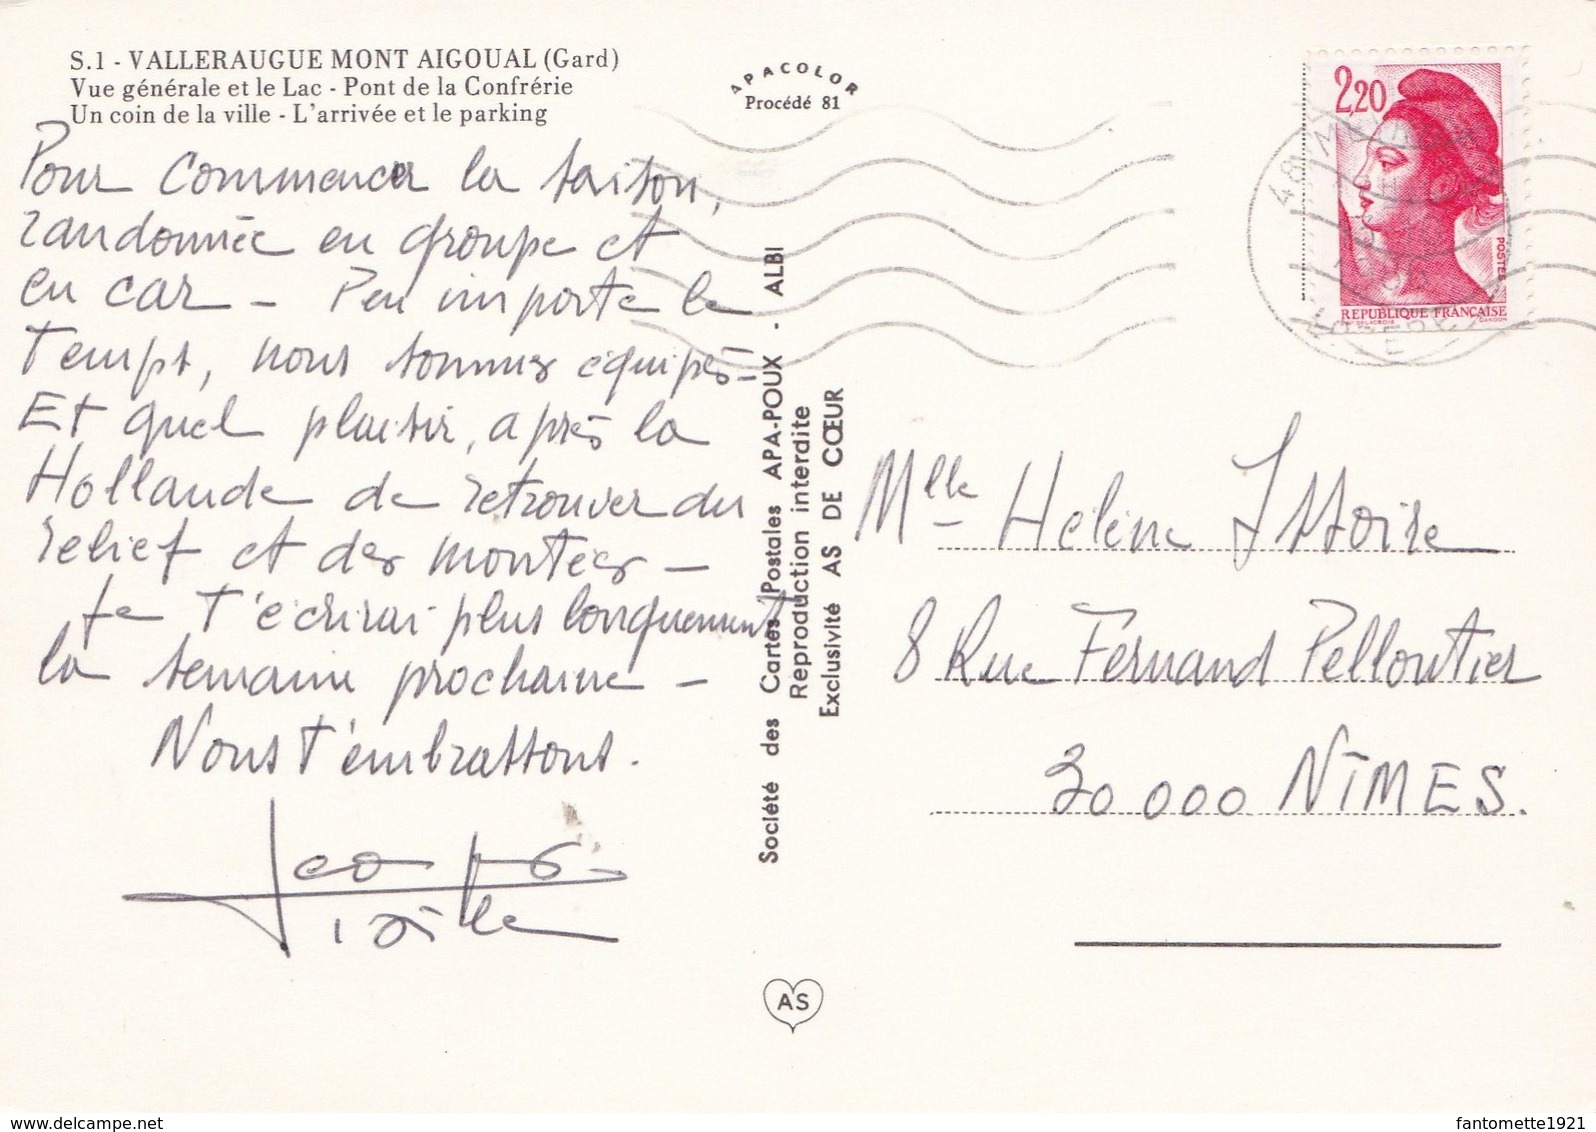 S.1 - VALLERAUGUE MONT AIGOUAL (Gard)
Vue générale et le Lac - Pont de la Confrérie
Un coin de la ville - L'arrivée et le parking
APACOLOR
Procédé 81
Pour commencer la saison,
randonnée en groupe et
en car - Peu importe le
temps, nous sommes équipés -
Et quel plaisir, après la
Hollande de retrouver du
relief et des montées -
Je t'écrirai plus longuement
la semaine prochaine -
Nous t'embrassons.
Société des Cartes Postales APA-POUX . ALBI
Reproduction interdite
Exclusivité AS DE CŒUR
AS
2,20
POSTES
REPUBLIQUE FRANÇAISE
Mlle Hélène Issoire
8 Rue Fernand Pelloutier
30000 NÎMES.
fantomette1921